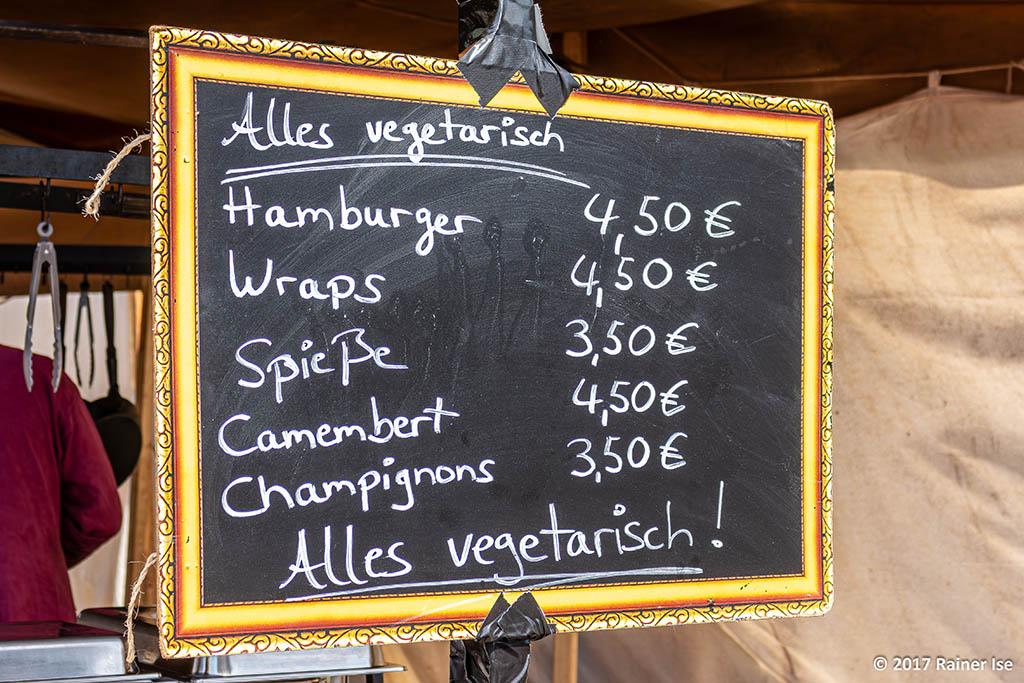 Alles vegetarisch
Hamburger 4,50 €
Wraps 4,50 €
Spieße 3,50 €
Camembert 4,50 €
Champignons 3,50 €
Alles vegetarisch!
© 2017 Rainer Ise